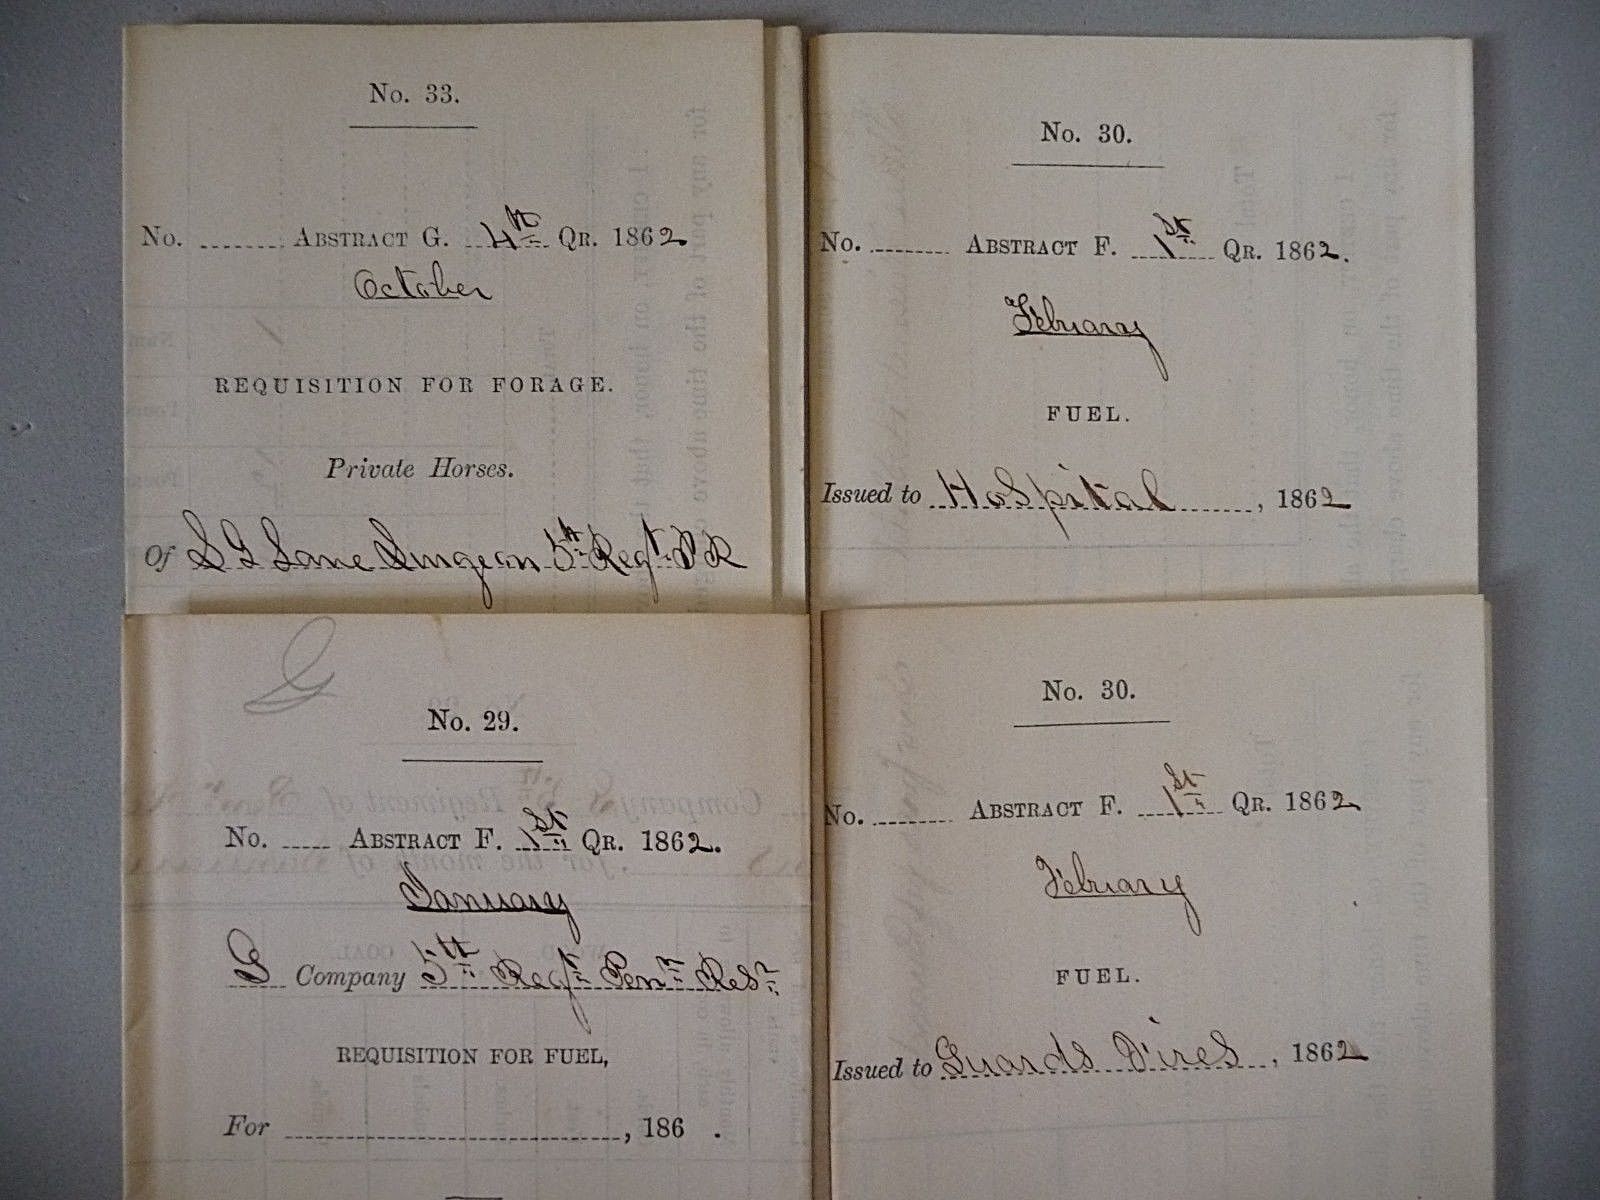 No. 33.
No. ........ Abstract G. 4th Qr. 1862
October
REQUISITION FOR FORAGE.
Private Horses.
Of S G Lane Surgeon 5th Regt P R
No. 30.
No. ........ Abstract F. 1st Qr. 1862.
February
FUEL.
Issued to Hospital, 1862
G
No. 29.
No. ..... Abstract F. 1st Qr. 1862.
January
G Company 5th Regt Penn Resr
REQUISITION FOR FUEL,
For ........, 186 .
No. 30.
No. ........ Abstract F. 1st Qr. 1862
February
FUEL.
Issued to Guards Fires, 1862